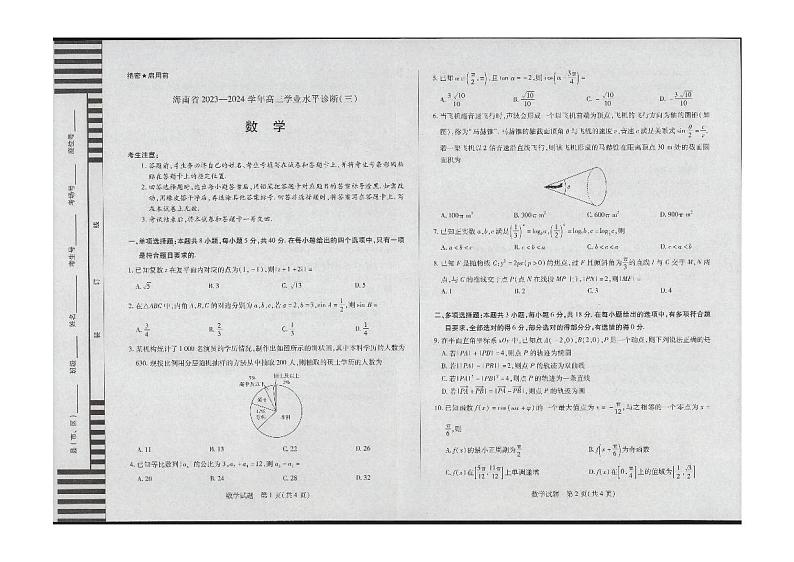 绝密★启用前
海南省2023—2024学年高三学业水平诊断(三)
数 学
考生注意:
1. 答题前,考生务必将自己的姓名、考生号填写在试卷和答题卡上,并将考生号条形码粘
贴在答题卡上的指定位置.
2. 回答选择题时,选出每小题答案后,用铅笔把答题卡对应题目的答案标号涂黑.如需改
动,用橡皮擦干净后,再选涂其他答案标号.回答非选择题时,将答案写在答题卡上.写
在本试卷上无效.
3. 考试结束后,将本试卷和答题卡一并交回.
一、单项选择题:本题共8小题,每小题5分,共40分.在每小题给出的四个选项中,只有一项
是符合题目要求的.
1. 已知复数z在复平面内对应的点为(1,-1),则|z+1+2i|=
A. √5 B. 3 C. √13 D. 5
2. 在△ABC中,内角A,B,C的对边分别为a,b,c,若a=2,b=3,sin A=1/2,则sin B=
A. 3/4 B. 2/3 C. 1/3 D. 1/4
3. 某机构统计了1 000名演员的学历情况,制作出如图所示的饼状图,其中本科学历的人数为
630.现按比例用分层随机抽样的方法从中抽取200人,则抽取的硕士学历的人数为
博士及以上
2%
高中及以下
专科
12%
硕士
本科
A. 11 B. 13 C. 22 D. 26
A. 20 B. 24 C. 28 D. 32
数学试题 第1页(共4页)
5. 已知α∈(π/2,π),且tan α=-2,则sin(α-3π/4)=
A. 3√10/10 B. √10/10 C. -√10/10 D. -3√10/10
6. 当飞机超音速飞行时,声波会形成一个以飞机前端为顶点,飞机的飞行方向为轴的圆锥(如
图),称为“马赫锥”.马赫锥的轴截面顶角θ与飞机的速度v,音速c满足关系式sin θ/2=c/v.
若一架飞机以2倍音速沿直线飞行,则该飞机形成的马赫锥在距离顶点30 m处的截面圆
面积为
θ
A. 100π m² B. 300π m² C. 600π m² D. 900π m²
7. 已知正实数a,b,c满足(1/3)ᵃ=log₃a,(1/2)ᵇ=log₃b,c=log₂c,则
A. a<b<c B. c<b<a C. b<c<a D. c<a<b
8. 已知F是抛物线C:y²=2px(p>0)的焦点,过F且倾斜角为π/3的直线l与C交于M,N两
点,与C的准线交于点P(点N在线段MP上),|PN|=2,则|MF|=
A. 1 B. 2 C. 3 D. 4
二、多项选择题:本题共3小题,每小题6分,共18分.在每小题给出的选项中,有多项符合题
目要求.全部选对的得6分,部分选对的得部分分,有选错的得0分.
9. 在平面直角坐标系xOy中,已知点A(-2,0),B(2,0),P是一个动点,则下列说法正确的是
A. 若|PA|+|PB|=4,则点P的轨迹为椭圆
B. 若|PA|-|PB|=2,则点P的轨迹为双曲线
C. 若|PA|²-|PB|²=4,则点P的轨迹为一条直线
D. 若|PA+PB|=|PA-PB|,则点P的轨迹为圆
10. 已知函数f(x)=cos(ωx+φ)的一个最大值点为x=-π/12,与之相邻的一个零点为x=
π/6,则
A. f(x)的最小正周期为π/2 B. f(x+π/6)为奇函数
C. f(x)在[5π/12,11π/12]上单调递增 D. f(x)在[0,π/4]上的值域为[1/2,√3/2]
数学试题 第2页(共4页)